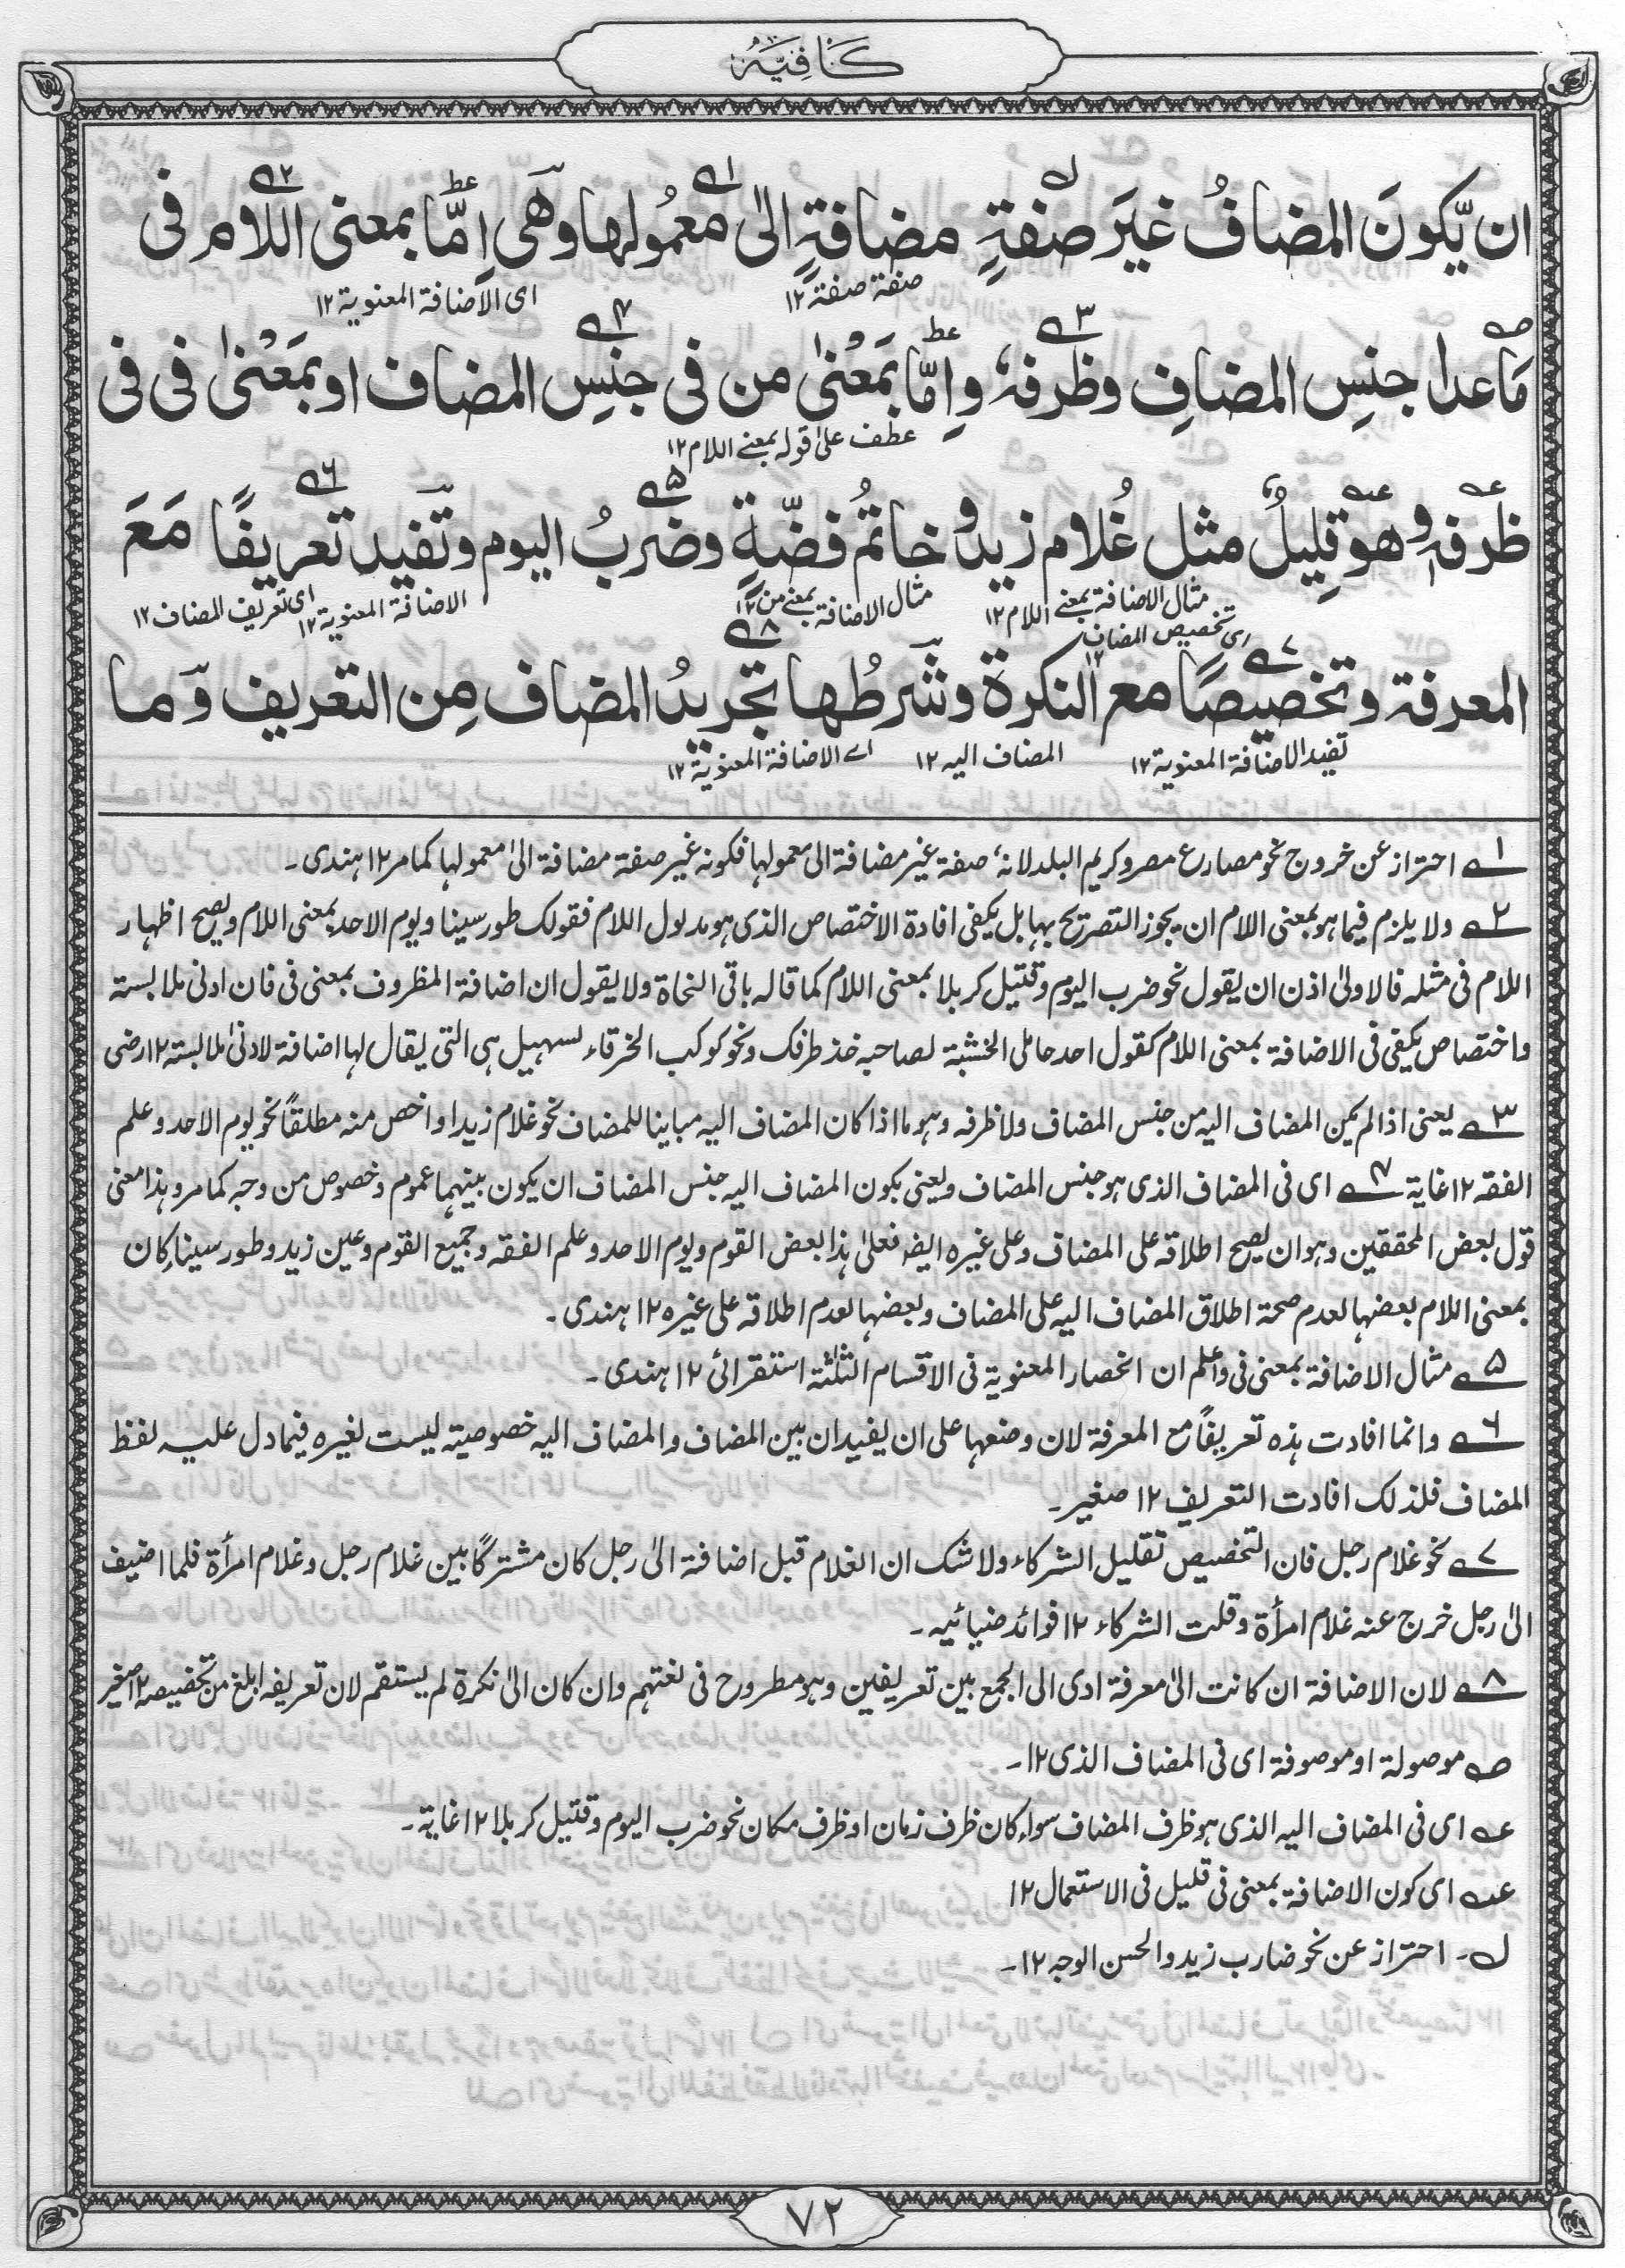 كَافِيَه
ان يّكونَ المضافُ غيَر صفةٍ مضافةٍ الىٰ معمُولها وهَى اِمّا بمعنى اللام فى
صفة صفة ١٢
اى الاضافة المعنوية ١٢
مَاعدا جنسِ المضافِ وظرفهٖ واِمّا بمَعْنىٰ من فى جنسِ المضاف او بمَعْنىٰ فى فى
عطف علىٰ قوله بمعنے اللام ١٢
ظرفهٖ وهو قليلٌ مثل غُلام زيدٍ وخاتمُ فضّةٍ وضربُ اليوم وتفيد تعريفًا مَعَ
مثال الاضافة بمعنے اللام ١٢
مثال الاضافة بمعنے من ١٢
الاضافة المعنوية ١٢
اى تعريف المضاف ١٢
اى تخصيص المضاف ١٢
المعرفة وتخصيصًا مع النكرة وشرطُها تجريدُ المضاف مِن التعريف وَما
تفيد الاضافة المعنوية ١٢
المضاف اليه ١٢
اے الاضافة المعنوية ١٢
١ے احتراز عن خروج نحو مصارع مصر وكريم البلد لانهٗ صفة غير مضافة الى معمولها فكونه غير صفة مضافة الىٰ معمولها كما مر ١٢ هندى۔
٢ے ولا يلزم فيما هو بمعنى اللام ان يجوز التصريح بها بل يكفى افادة الاختصاص الذى هو مدلول اللام فقولك طور سينا ويوم الاحد بمعنى اللام ويصح اظهار
اللام فى مثله فالاولىٰ اذن ان يقول نحو ضرب اليوم وقتيل كربلا بمعنى اللام كما قاله باقى النحاة ولا يقول ان اضافة المظروف بمعنى فى فان ادنى ملابسته
واختصاص يكفى فى الاضافة بمعنى اللام كقول احد حاملى الخشبة لصاحبه خذ طرفك ونحو كوكب الخرقاء لسهيل هى التى يقال لها اضافة لادنىٰ ملابسته ١٢ رضى
٣ے يعنى اذا لم يكن المضاف اليه من جنس المضاف ولا ظرفه وهو ما اذا كان المضاف اليه مباينا للمضاف نحو غلام زيد او اخص منه مطلقًا نحو يوم الاحد وعلم
الفقه ١٢ غاية ٤ے اى فى المضاف الذى هو جنس المضاف ويعنى بكون المضاف اليه جنس المضاف ان يكون بينهما عموم وخصوص من وجه كما مر وهذا معنى
قول بعض المحققين وهو ان يصح اطلاقه على المضاف وعلى غيره ايضا فعلىٰ هذا بعض القوم ويوم الاحد وعلم الفقه وجميع القوم وعين زيد وطور سينا كان
بمعنى اللام بعضها لعدم صحة اطلاق المضاف اليه على المضاف وبعضها لعدم اطلاقه على غيره ١٢ هندى۔
٥ے مثال الاضافة بمعنى فى واعلم ان انحصار المعنوية فى الاقسام الثلثة استقرائى ١٢ هندى۔
٦ے وانما افادت هذه تعريفًا مع المعرفة لان وضعها على ان يفيد ان بين المضاف والمضاف اليه خصوصيته ليست لغيره فيما دل عليه لفظ
المضاف فلذلك افادت التعريف ١٢ صغير۔
٧ے نحو غلام رجل فان التخصيص تقليل الشركاء ولا شك ان الغلام قبل اضافة الىٰ رجل كان مشتركًا بين غلام رجل وغلام امرأة فلما اضيف
الىٰ رجل خرج عنه غلام امرأة وقلت الشركاء ١٢ فوائد ضيائيه۔
٨ے لان الاضافة ان كانت الىٰ معرفة ادى الى الجمع بين تعريفين وهو مطروح فى لغتهم وان كان الىٰ نكرة لم يستقم لان تعريفه ابلغ من تخصيصه ١٢ صغير
صے موصولة او موصوفة اى فى المضاف الذى ١٢۔
عے اى فى المضاف اليه الذى هو ظرف المضاف سواء كان ظرف زمان او ظرف مكان نحو ضرب اليوم وقتيل كربلا ١٢ غاية۔
عے اى كون الاضافة بمعنى فى قليل فى الاستعمال ١٢
ل۔ احتراز عن نحو ضارب زيد والحسن الوجه ١٢۔
٧٢